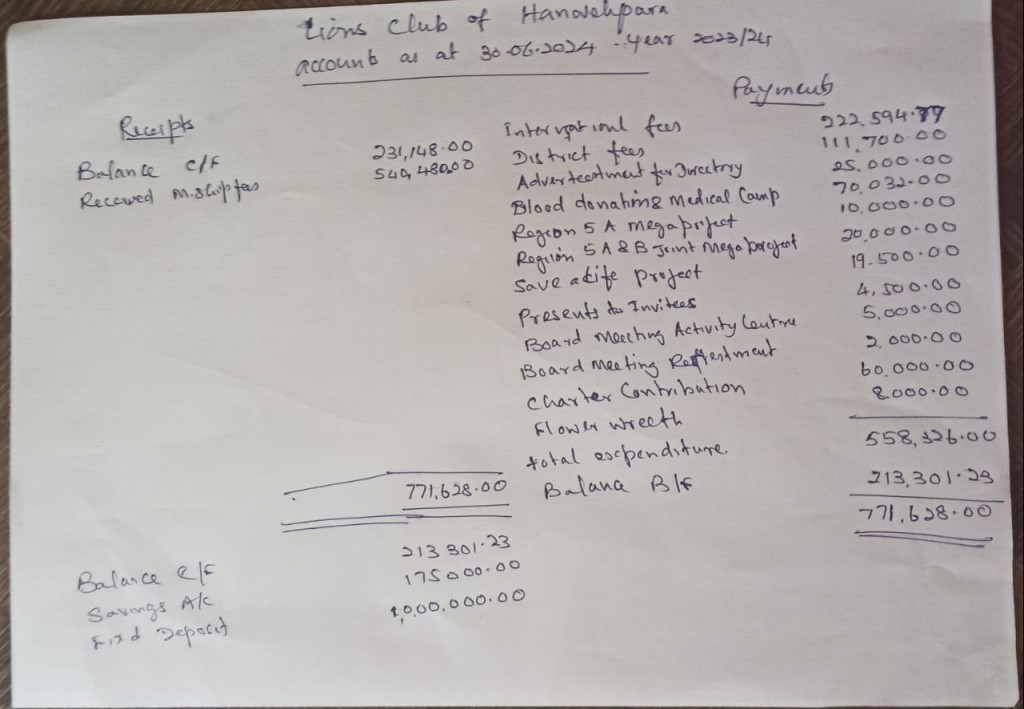 Lions Club of Hanwellpara
accounts as at 30-06-2024 - Year 2023/24
Receipts
Payments
Balance C/F 231,148.00
Received M.ship fees 540,480.00
International fees 222,594.77
District fees 111,700.00
Advertestment for Directory 25,000.00
Blood donating & Medical Camp 70,032.00
Region 5 A Mega project 10,000.00
Region 5 A & B Joint Mega project 20,000.00
Save a Life Project 19,500.00
Presents to Invitees 4,500.00
Board Meeting Activity Centre 5,000.00
Board Meeting Reffrestment 2,000.00
Charter Contribution 60,000.00
Flower wreeth 8,000.00
total expenditure. 558,326.00
771,628.00 Balance B/F 213,301.23
771,628.00
Balance C/F 213301.23
Savings A/C 175000.00
Fixd Deposit 1,000,000.00